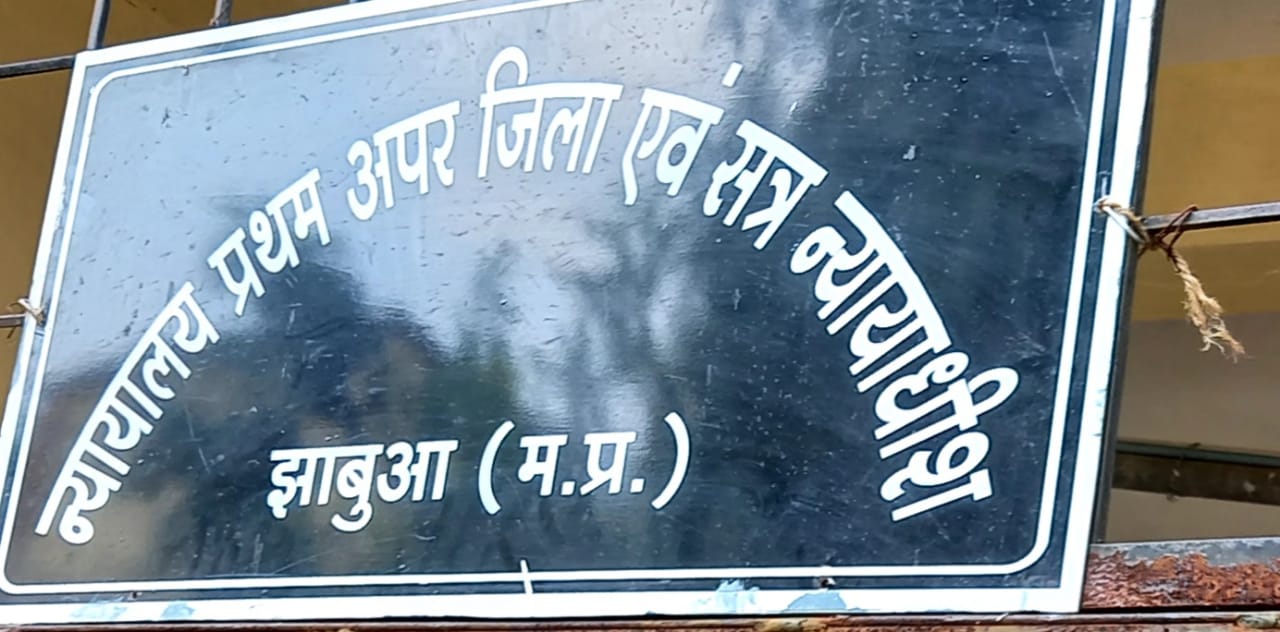 न्यायालय प्रथम अपर जिला एवं सत्र न्यायाधीश
झाबुआ (म.प्र.)